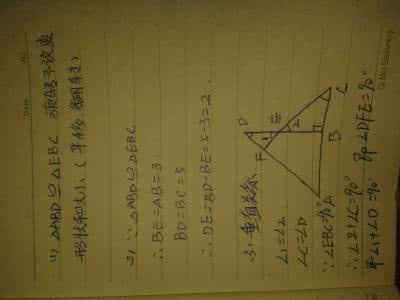 (1) △ABD≌△EBC 旋转不改变
形状和大小 (平移、翻转)
(2) ∵△ABD≌△EBC
∴BE=AB=3
BD=BC=5
∴DE=BD-BE=5-3=2
(3) 垂直关系
∠1=∠2
∠C=∠D
∵∠EBC=90°
∴∠2+∠C=90°
∠1+∠D=90° 即∠DFE=90°
D
E
F
1
2
A
B
C
Date